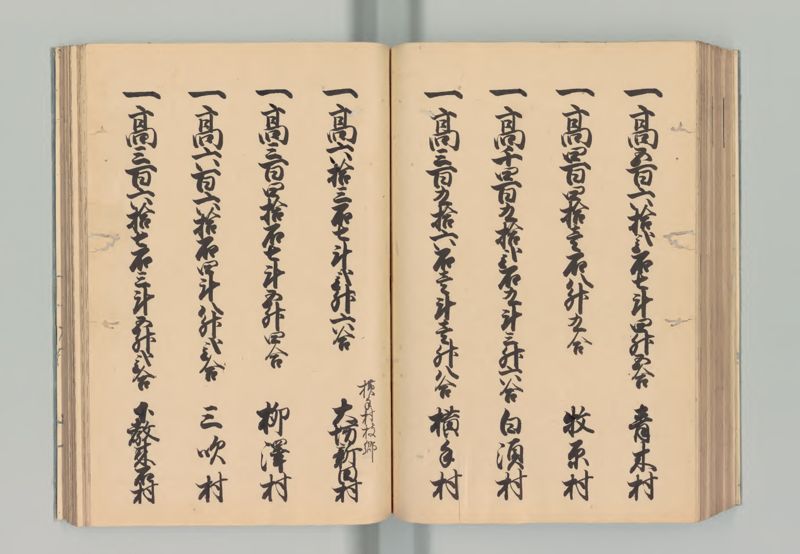 一高五百六拾弐石七斗四升五合 青木村
一高四百四拾壱石八升九合 牧原村
一高千四百九拾弐石九斗三升六合 白須村
一高三百九拾六石壱斗壱升八合 横手村
横手村枝郷
一高六拾三石七斗弐升六合 大坊新田村
一高三百四拾石七斗五升四合 柳澤村
一高六百六拾石四斗八升弐合 三吹村
一高三百六拾七石三斗五升弐合 下教来石村